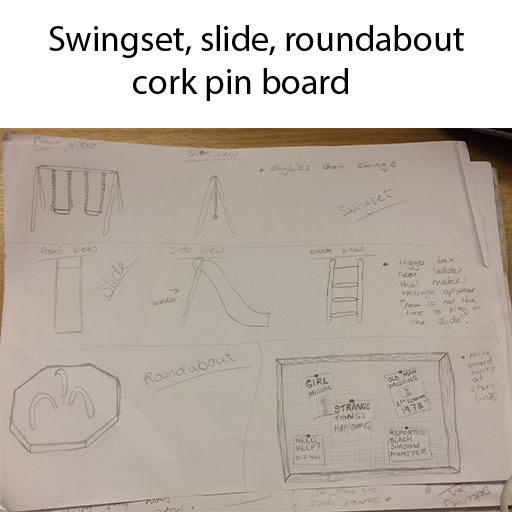 Swingset, slide, roundabout
cork pin board
Front view
Side view
• physics chain swings
Swingset
front view
side view
back view
Slide
ladder
• trigger box
near ladder
that makes
message appear
"now is not the
time to play on
the slide.
Roundabout
GIRL
MISSING
OLD MAN
MISSING
1978
STRANGE
THINGS
HAPPENING
NEED
HELP?
REPORTED!
BLACK
SHADOW
MONSTER
• Notice
board
hints
at
story
line